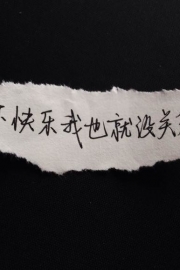 快乐我也就没关